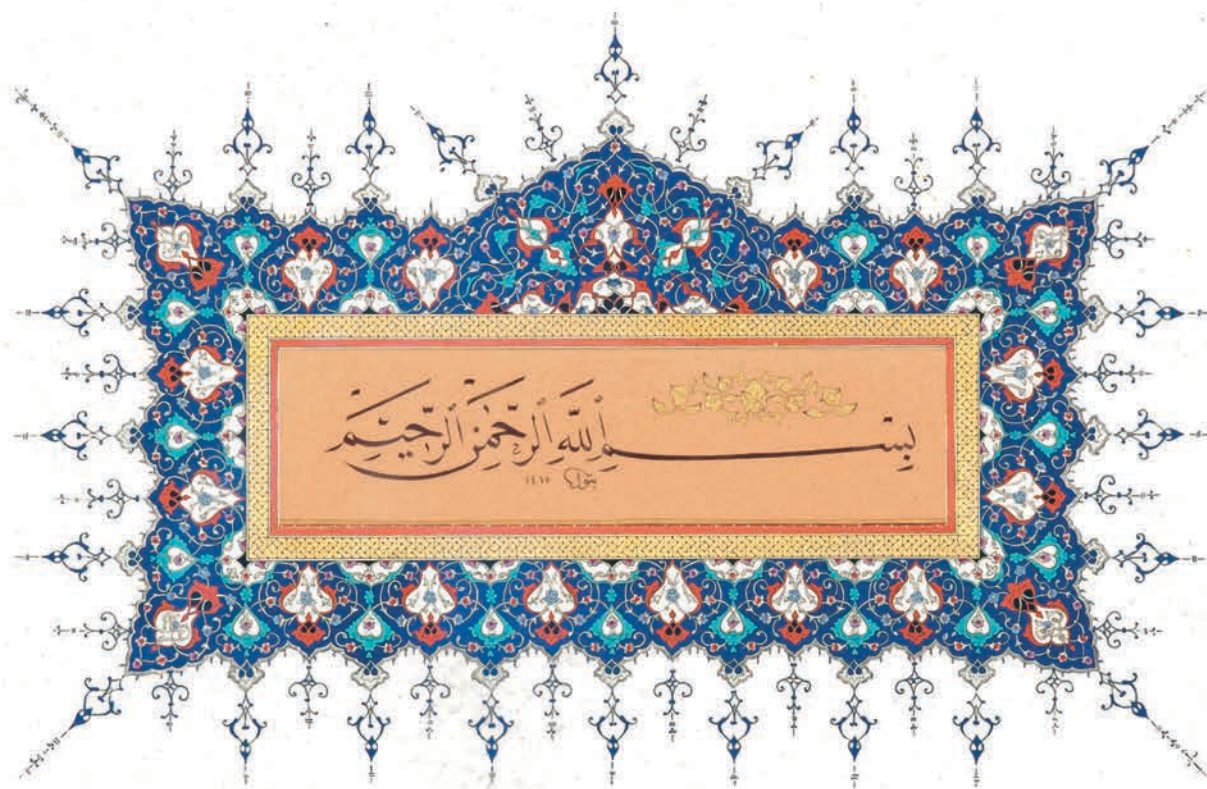 بِسْمِ اللَّهِ الرَّحْمٰنِ الرَّحِيْمِ
١٤١٥